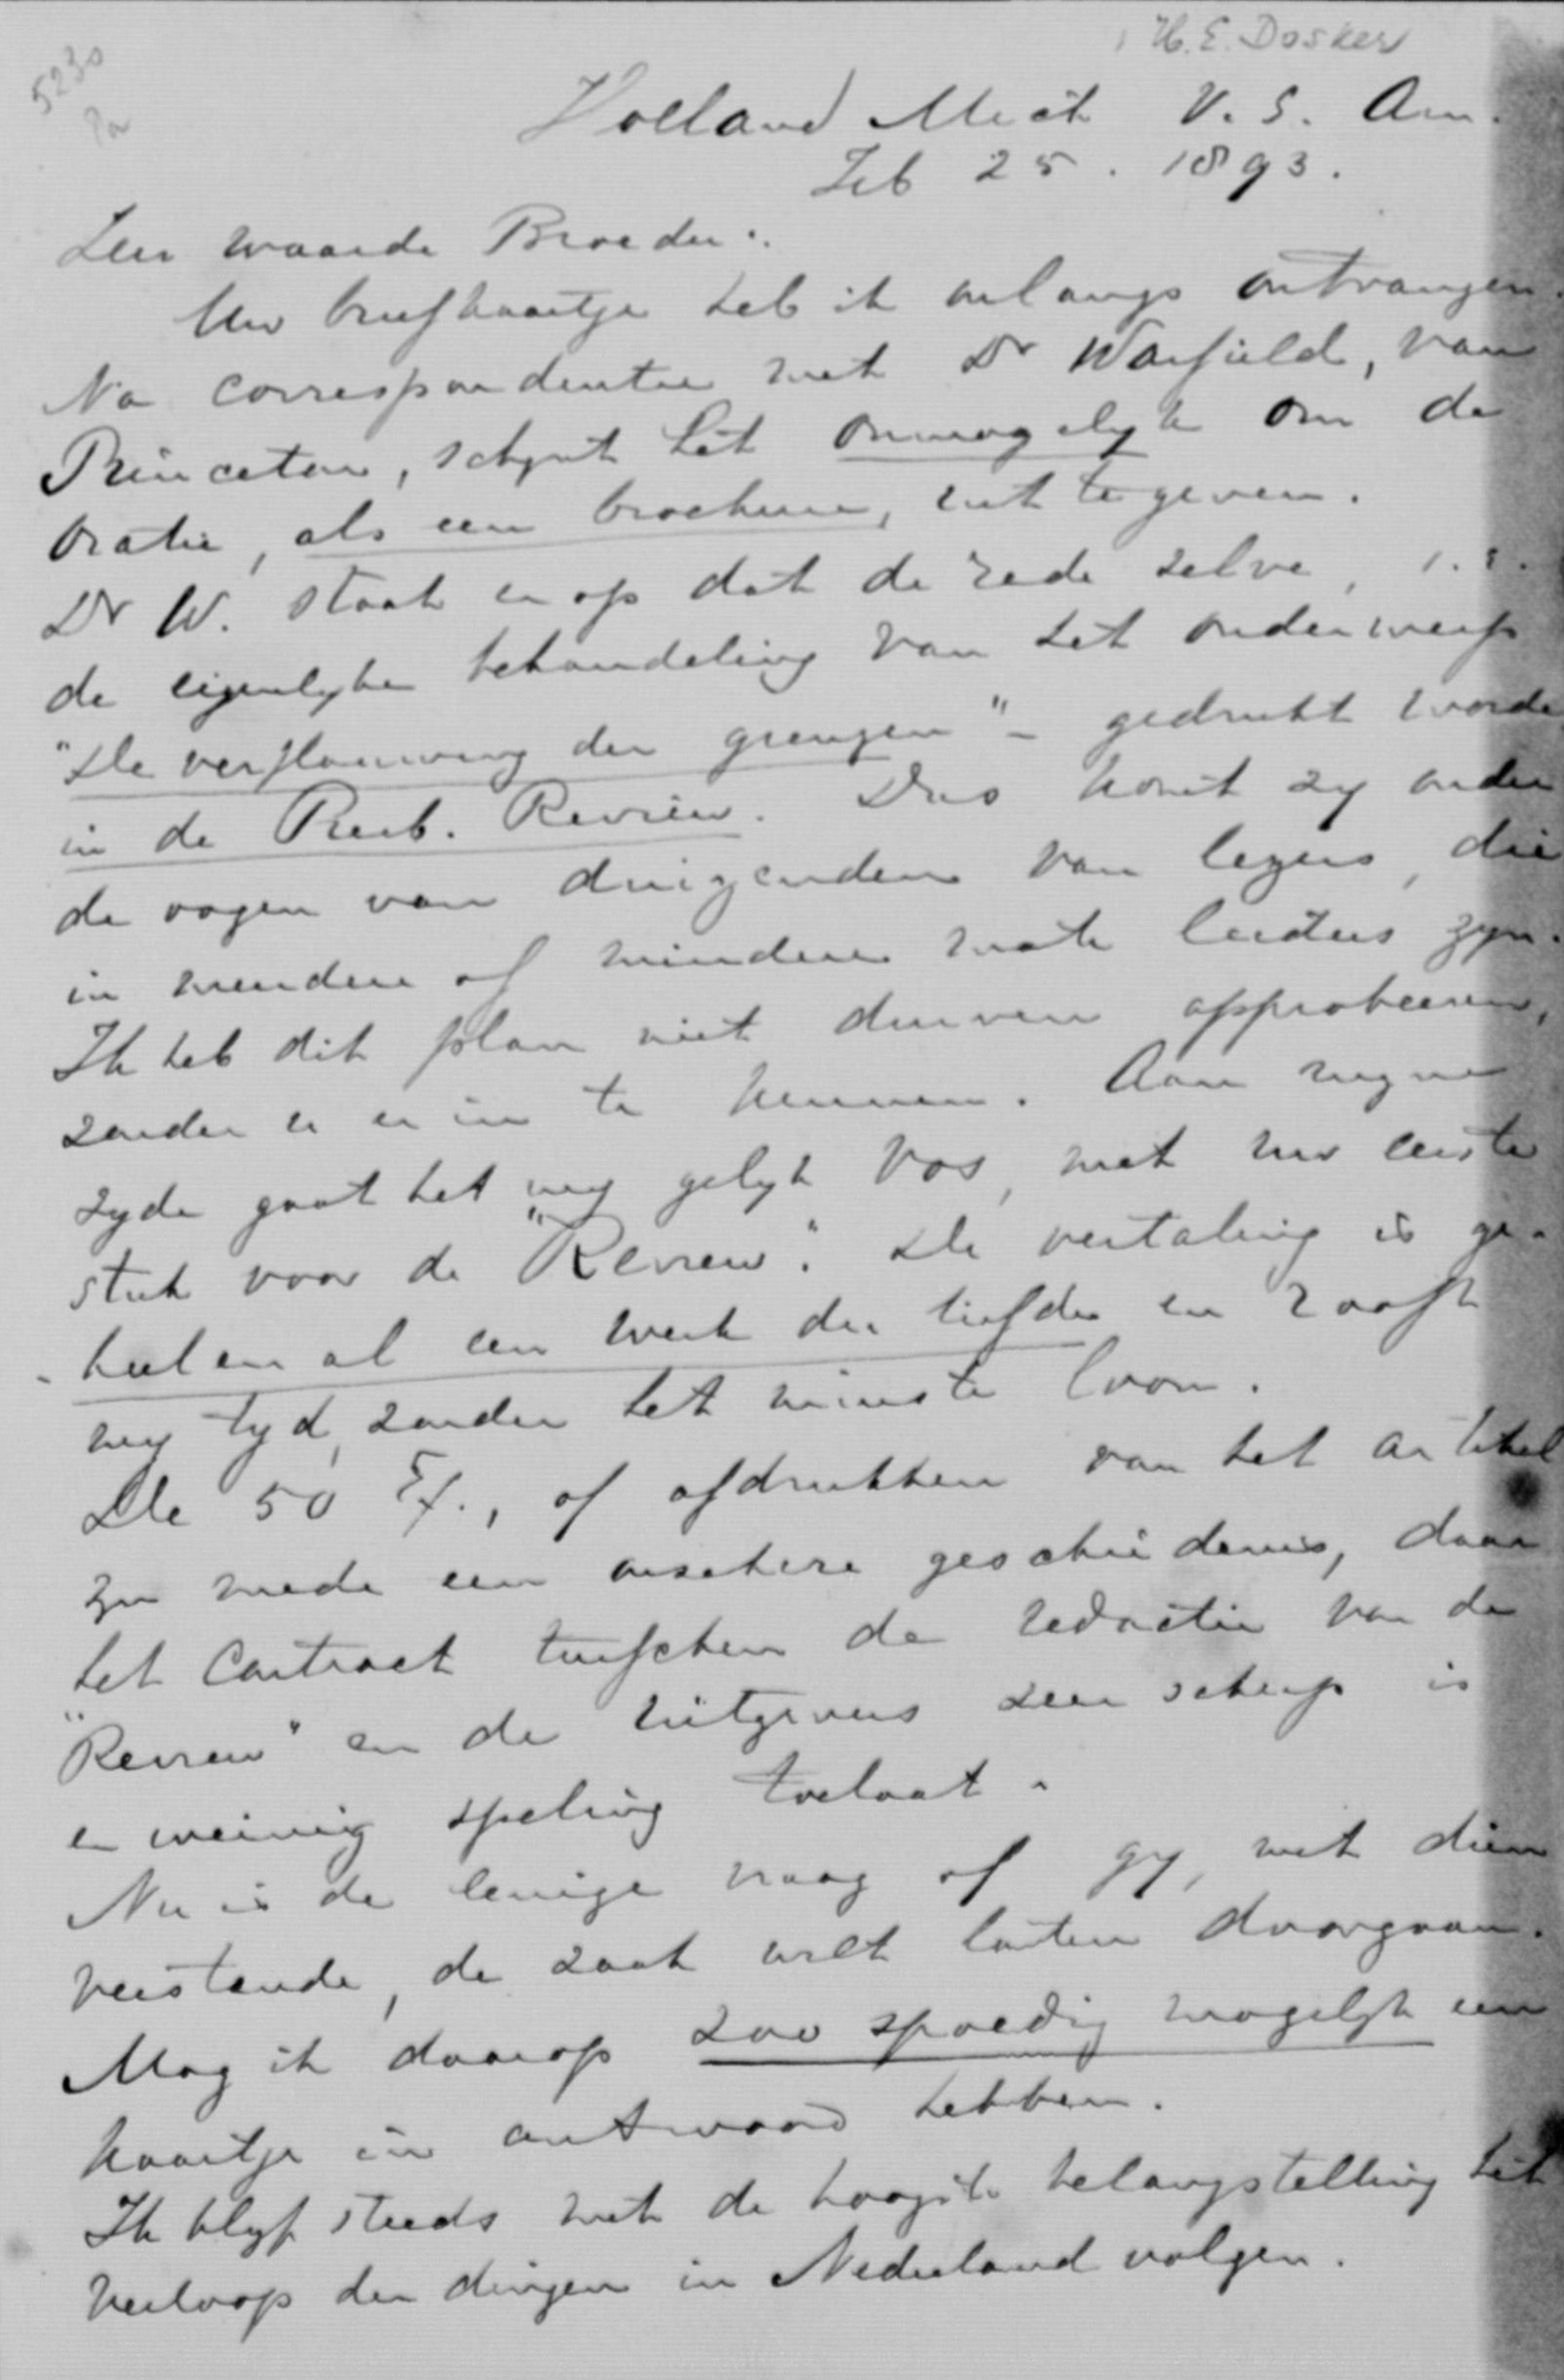 H. E. Dosker
5230
Pa
Holland Mich V. S. Am.
Feb 25. 1893.
Zeer waarde Broeder:
Uw briefkaartje heb ik onlangs ontvangen.
Na correspondentie met Dr Warfield, van
Princeton, schynt het onmogelyk om de
oratie, als een brochure, uit te geven.
Dr W. staat er op dat de rede zelve, i.e.
de eigenlyke behandeling van het onderwerp
"De verflauwing der grenzen" – gedrukt worde
in de Presb. Review. Dus komt zy onder
de oogen van duizenden van lezers, die
in meerdere of mindere mate leiders zyn.
Ik heb dit plan niet durven approbeeren,
zonder u er in te kennen. Aan myne
zyde gaat het my gelyk Vos, met uw eerste
stuk voor de "Review". De vertaling is ge-
heel en al een werk der liefde en rooft
my tyd, zonder het minste loon.
De 50 Ex., of afdrukken van het artikel
zyn mede een onzekere geschiedenis, daar
het Contract tusschen de redactie van de
"Review" en de uitgevers zeer scherp is
en weinig speling toelaat.
Nu is de eenige vraag of gy, met dien
verstande, de zaak wilt laten doorgaan.
Mag ik daarop zoo spoedig mogelyk een
kaartje in antwoord hebben.
Ik blyf steeds met de hoogste belangstelling het
verloop der dingen in Nederland volgen.